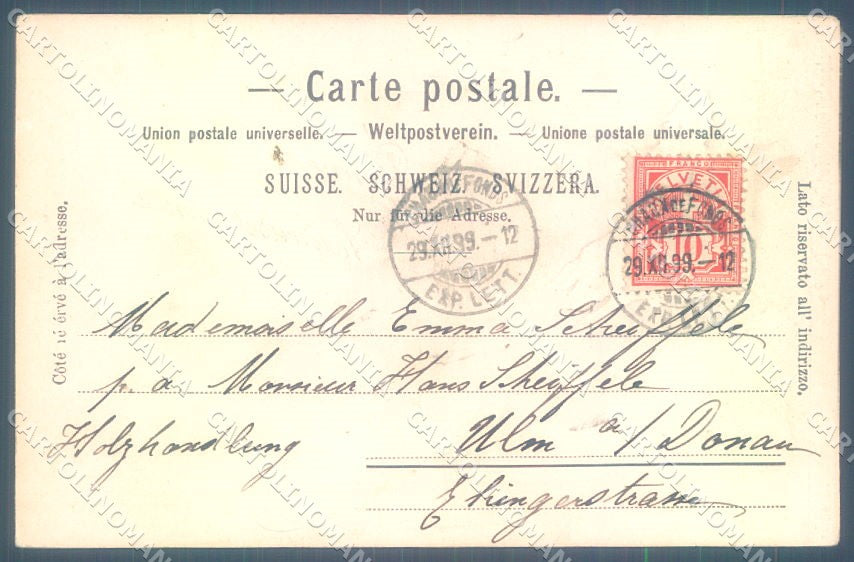 — Carte postale. —
Union postale universelle. — Weltpostverein. — Unione postale universale.
SUISSE. SCHWEIZ. SVIZZERA.
Nur für die Adresse.
Côté réservé à l'adresse.
Lato riservato all' indirizzo.
FRANCO
HELVETIA
10
CHAUX DE FONDS
29.XII.99.–12
EXP. LETT.
CHAUX DE FONDS
29.XII.99.–12
EXP. LETT.
Mademoiselle Emma Scheiffele
p. a Monsieur Hans Scheiffele
Holzhandlung Ulm a/Donau
Ehingerstrasse
CARTOLINOMANIA